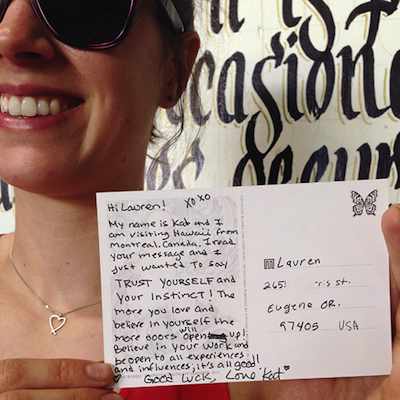 is
occasion
Hi Lauren!
XOXO
My name is Kat and I
am visiting Hawaii from
Montreal, Canada. I read
your message and I
just wanted to say
TRUST YOURSELF and
YOUR INSTINCT! The
more you love and
believe in yourself the
more doors will open up!
Believe in your work and
be open to all experiences
and influences, it's all good!
Good Luck, Love Kat
Lauren
2651 st.
Eugene OR.
97405 USA